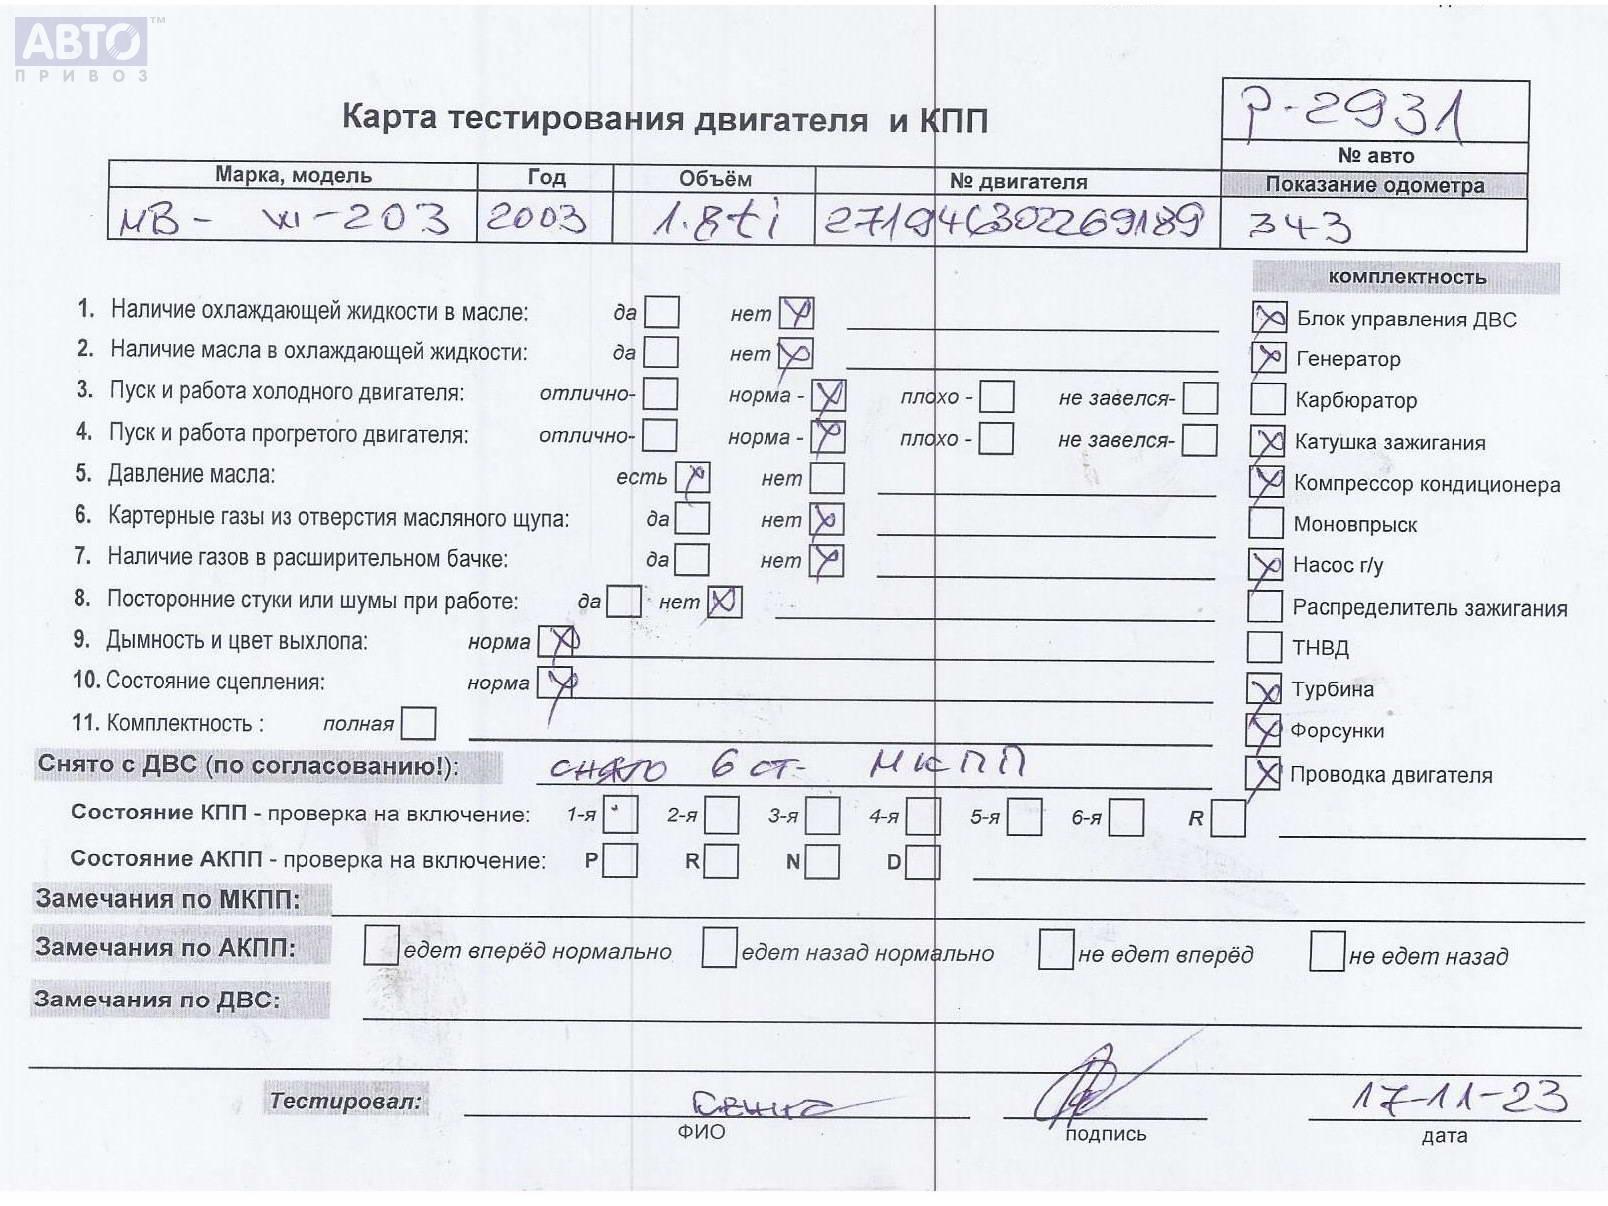 АВТО™
ПРИВОЗ
Карта тестирования двигателя и КПП
P-2931
№ авто
Марка, модель Год Объём № двигателя Показание одометра
MB - W-203 2003 1.8ti 271946302269189 343
комплектность
1. Наличие охлаждающей жидкости в масле: да нет
Блок управления ДВС
2. Наличие масла в охлаждающей жидкости: да нет
Генератор
3. Пуск и работа холодного двигателя: отлично- норма - плохо - не завелся-
Карбюратор
4. Пуск и работа прогретого двигателя: отлично- норма - плохо - не завелся-
Катушка зажигания
5. Давление масла: есть нет
Компрессор кондиционера
6. Картерные газы из отверстия масляного щупа: да нет
Моновпрыск
7. Наличие газов в расширительном бачке: да нет
Насос г/у
8. Посторонние стуки или шумы при работе: да нет
Распределитель зажигания
9. Дымность и цвет выхлопа: норма
ТНВД
10. Состояние сцепления: норма
Турбина
11. Комплектность : полная
Форсунки
Снято с ДВС (по согласованию!): снято 6 ст- МКПП
Проводка двигателя
Состояние КПП - проверка на включение: 1-я 2-я 3-я 4-я 5-я 6-я R
Состояние АКПП - проверка на включение: P R N D
Замечания по МКПП:
Замечания по АКПП: едет вперёд нормально едет назад нормально не едет вперёд не едет назад
Замечания по ДВС:
Тестировал: 17-11-23
ФИО подпись дата